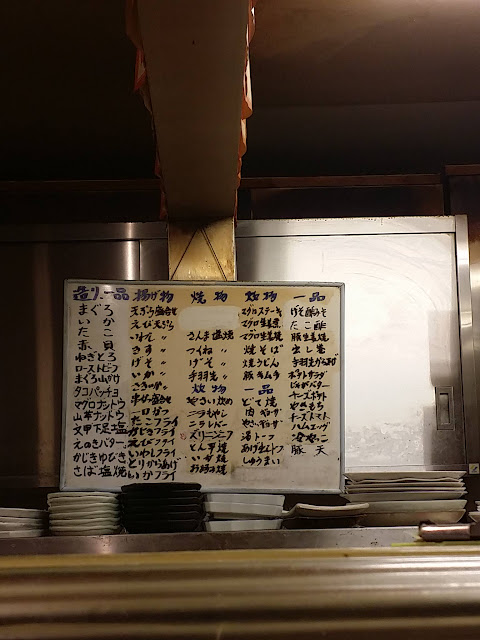 造り、一品
まぐろ
いか
たこ
赤貝
ねぎとろ
ローストビーフ
まぐろ山かけ
タコパッチョ
マグロナットウ
山羊ナットウ
文甲下足塩
えのきバター
かじきゆびき
さば塩焼
揚げ物
天ぷら盛合せ
えび天ぷら
いわし〃
きす〃
げそ〃
いか〃
串かつ盛合せ
一口カツ
たこフライ
かきフライ
えびフライ
いわしフライ
とりからあげ
いかフライ
焼物
さんま塩焼
つくね〃
げそ〃
手羽先〃
炒物
やさい炒め
ニラもやし
ニラレバー
とん平焼
いか焼
お好み焼
炊物
マグロステーキ
マグロ生姜煮
マグロ生姜焼
焼そば
焼うどん
豚キムチ
一品
どて焼
肉ギョーザ
やさいギョーザ
湯トーフ
あげだしトーフ
しゅうまい
一品
げそ酢みそ
たこ酢
豚生姜焼
出し巻
手羽先からあげ
ポテトサラダ
じゃがバター
チーズポテト
やきもち
チーズトマト
ハムエッグ
冷やっこ
豚天